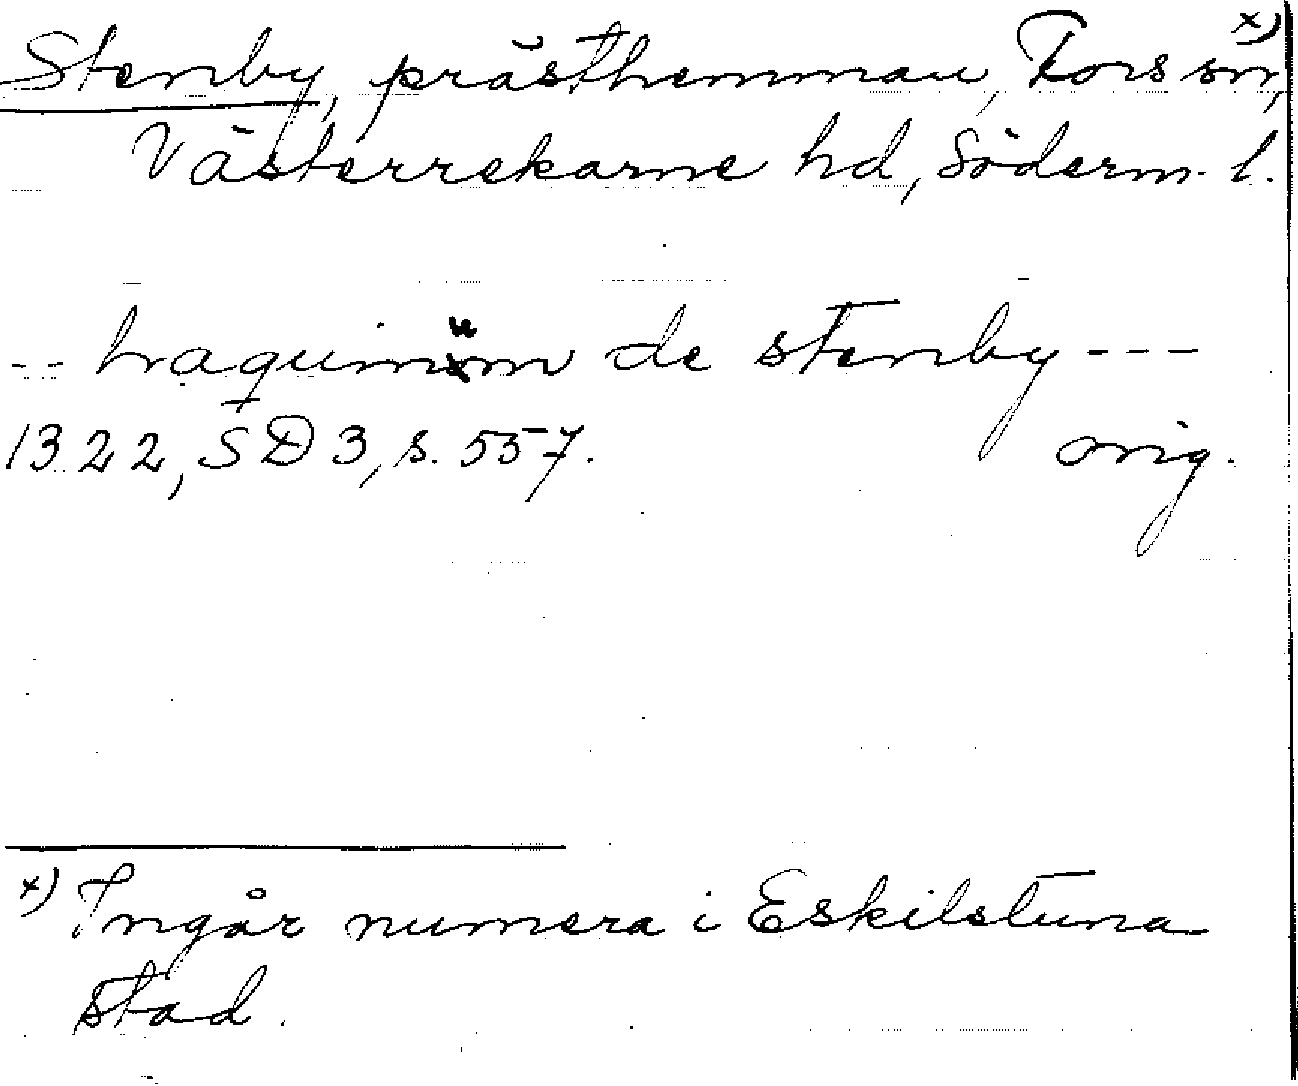 Stenby, prästhemman, Fors sn, x)
Västerrekarne hd, Söderm. l.
-- haquinum de stenby ---
1322, SD 3, s. 557. orig.
x) Ingår numera i Eskilstuna
stad.